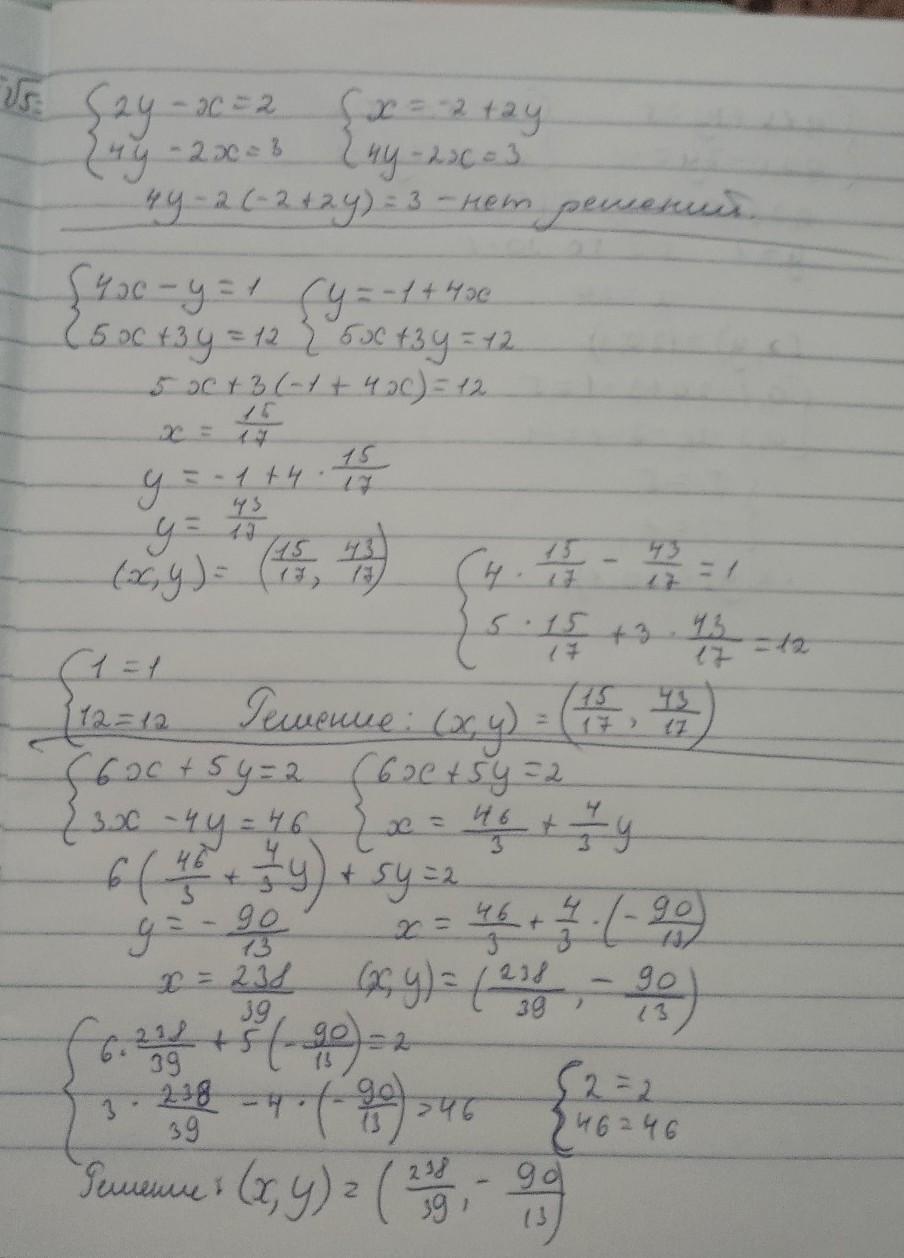 √5=
{2y - x = 2 {x = -2 + 2y
{4y - 2x = 3 {4y - 2x = 3
4y - 2(-2 + 2y) = 3 - нет решений.
{4x - y = 1 {y = -1 + 4x
{5x + 3y = 12 {5x + 3y = 12
5x + 3(-1 + 4x) = 12
x = 15/17
y = -1 + 4 · 15/17
y = 43/17
(x, y) = (15/17, 43/17) {4 · 15/17 - 43/17 = 1
{5 · 15/17 + 3 · 43/17 = 12
{1 = 1
{12 = 12 Решение: (x, y) = (15/17, 43/17)
{6x + 5y = 2 {6x + 5y = 2
{3x - 4y = 46 {x = 46/3 + 4/3 y
6(46/3 + 4/3 y) + 5y = 2
y = - 90/13 x = 46/3 + 4/3 · (- 90/13)
x = 238/39 (x, y) = (238/39, - 90/13)
{6 · 238/39 + 5(- 90/13) = 2
{3 · 238/39 - 4 · (- 90/13) = 46 {2 = 2
{46 = 46
Решение: (x, y) = (238/39, - 90/13)